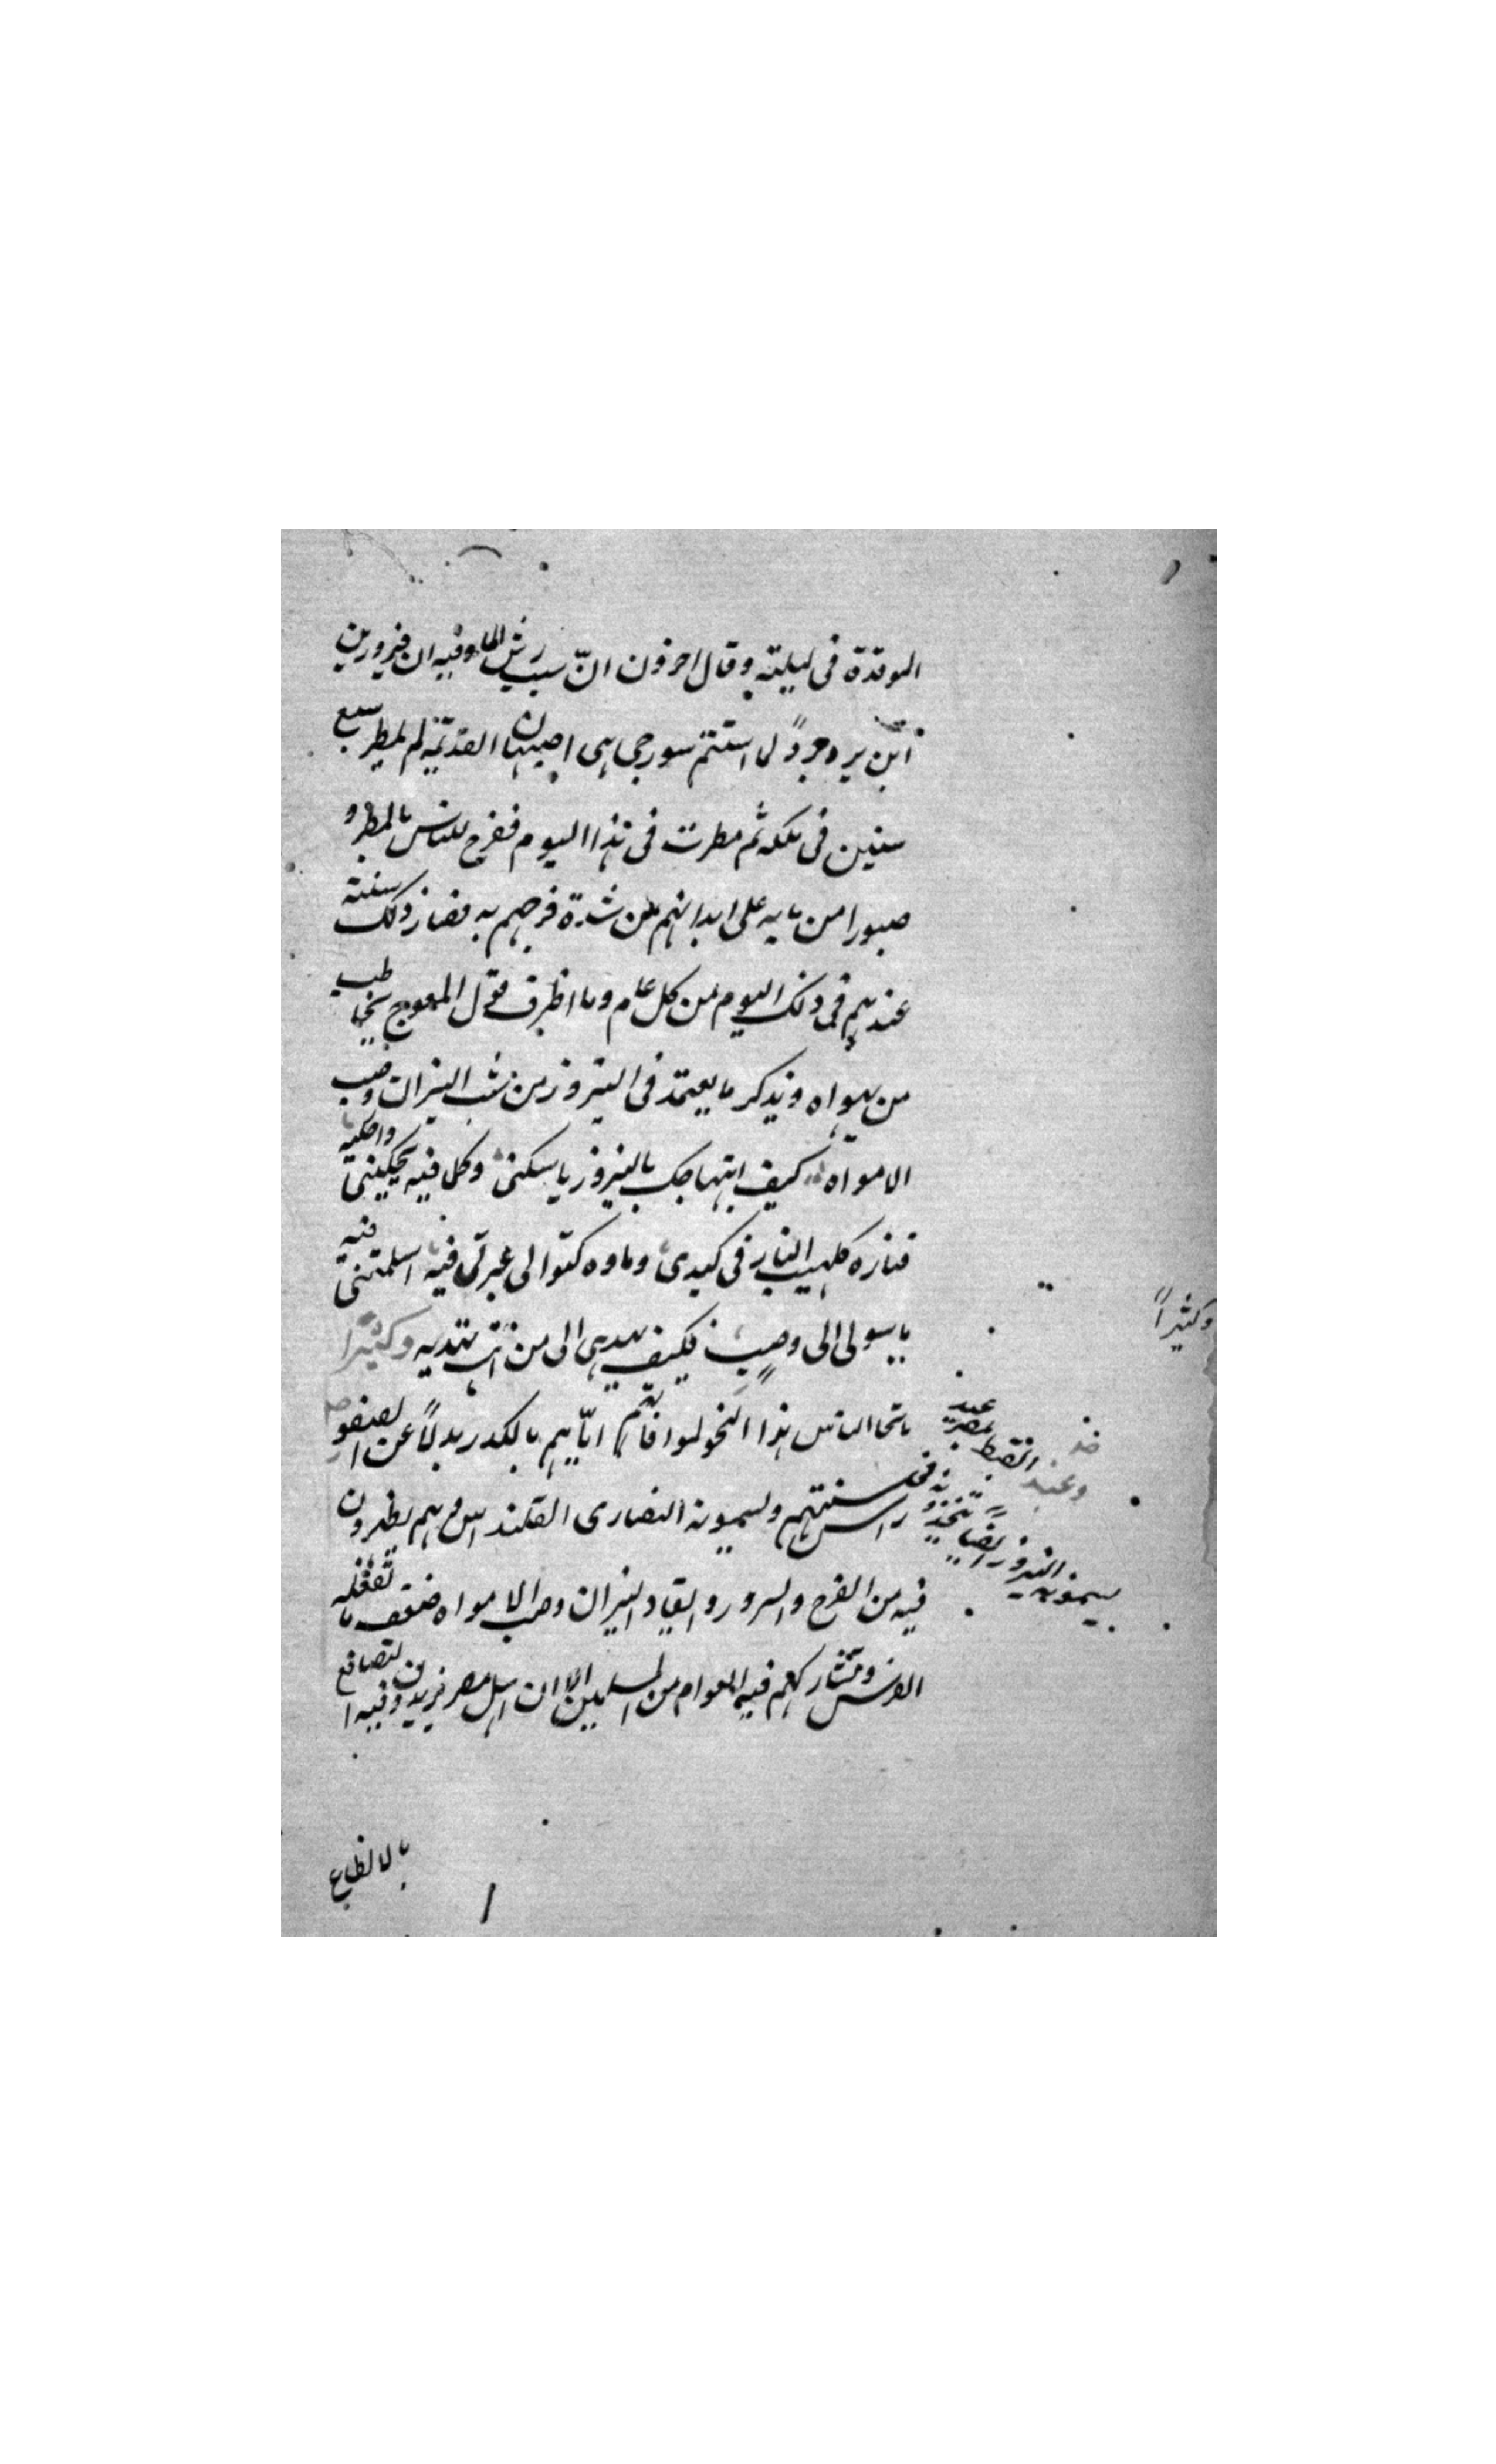 الموقدة فى ليلته وقال اخرون انّ سبب رش الماء فيه ان فيروزبن
ابن يزدجرد لما استتم سور جى وهى اصبهان القديمة لم يمطر سبع
سنين فى ملكه ثم مطرت فى هذا اليوم ففرح الناس بالمطر و
صبوا من مايه على ابدانهم من شدة فرحهم به فصار ذلك سنته
عندهم فى ذلك اليوم من كل عام وما اظرف قول المعوج يخاطب
من يهواه ويذكر ما يعتمد فى النيروز من شب النيران وصب
الامواه كيف ابتهاجك بالنيروز يا سكنى وكل ما فيه يحكينى واحكيه
فناره كلهيب النار فى كبدى وماوه كتوالى عبرتى فيه اسلمتنى فيه
يا سولى الى وصب فكيف يهدى الى من انت تهديه وكثيرًا
ما ينحا الناس هذا النحو
راس سنتهم ويسمونه النصارى القلنداس وهم يظهرون
فيه من الفرح والسرور وايقاد النيران وصب الامواه ضعف ما تفعله
الفرس وتشاركهم فيه العوام من المسلمين الا ان اهل مصر يزيدون فيه التصافع
بالانطاع
وكثيرًا
وعند القبط بمصر عيد
يسمونه النيروز ايضًا يتخذونه فى